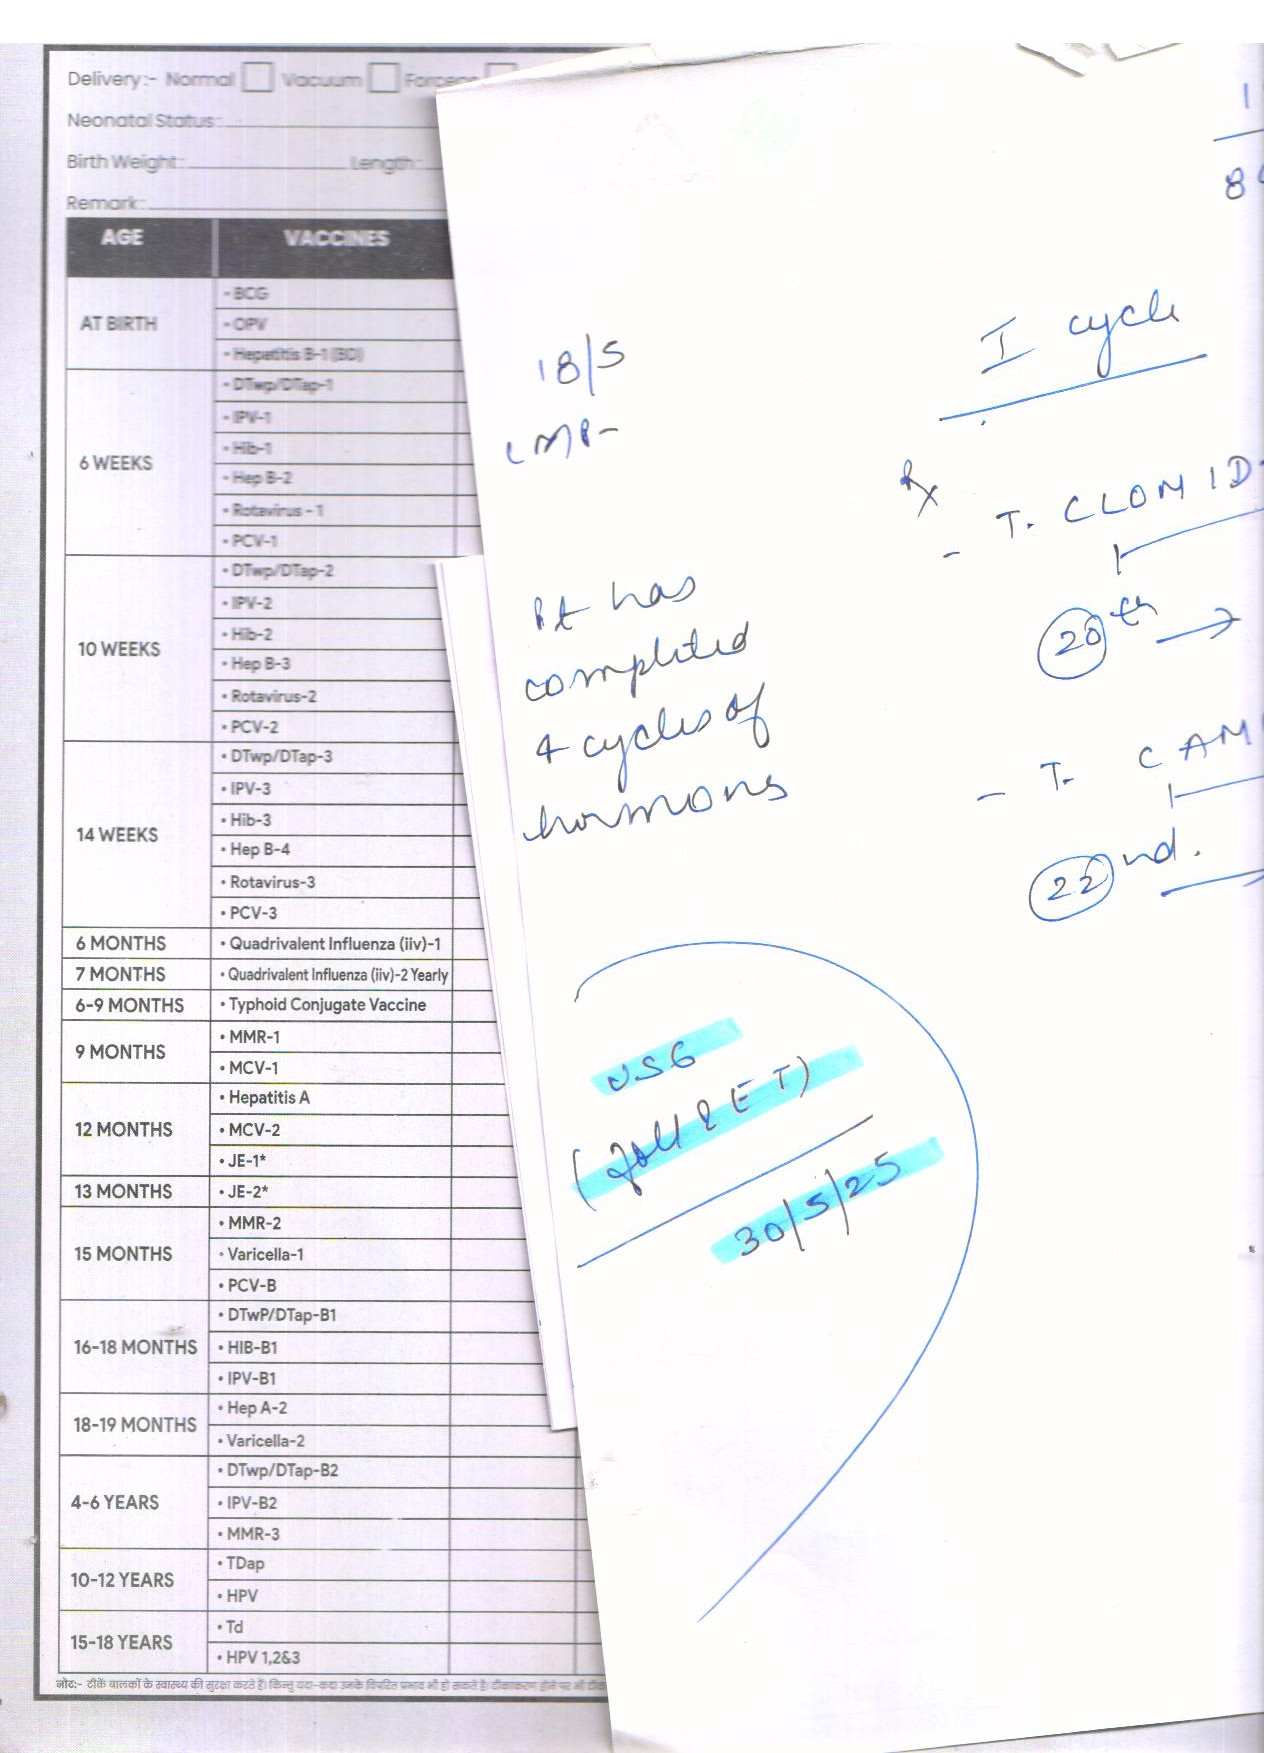 Delivery:- Normal Vacuum Forceps
Neonatal Status:
Birth Weight: Length:
Remark:
AGE VACCINES
AT BIRTH
• BCG
• OPV
• Hepatitis B-1 (BD)
6 WEEKS
• DTwp/DTap-1
• IPV-1
• Hib-1
• Hep B-2
• Rotavirus - 1
• PCV-1
10 WEEKS
• DTwp/DTap-2
• IPV-2
• Hib-2
• Hep B-3
• Rotavirus-2
• PCV-2
14 WEEKS
• DTwp/DTap-3
• IPV-3
• Hib-3
• Hep B-4
• Rotavirus-3
• PCV-3
6 MONTHS • Quadrivalent Influenza (iiv)-1
7 MONTHS • Quadrivalent Influenza (iiv)-2 Yearly
6-9 MONTHS • Typhoid Conjugate Vaccine
9 MONTHS
• MMR-1
• MCV-1
12 MONTHS
• Hepatitis A
• MCV-2
• JE-1*
13 MONTHS • JE-2*
15 MONTHS
• MMR-2
• Varicella-1
• PCV-B
16-18 MONTHS
• DTwP/DTap-B1
• HIB-B1
• IPV-B1
18-19 MONTHS
• Hep A-2
• Varicella-2
4-6 YEARS
• DTwp/DTap-B2
• IPV-B2
• MMR-3
10-12 YEARS
• TDap
• HPV
15-18 YEARS
• Td
• HPV 1,2&3
नोट:- टीकें बालकों के स्वास्थ्य की सुरक्षा करते हैं। किन्तु यदा-कदा उनके विपरित प्रभाव भी हो सकते है। टीकाकरण होने पर भी
18/5
LMP-
Pt has
completed
4 cycles of
hormons
USG
(foll & ET)
30/5/25
I cycle
Rx
- T. CLOMID
20th →
- T. CAM
22nd. →